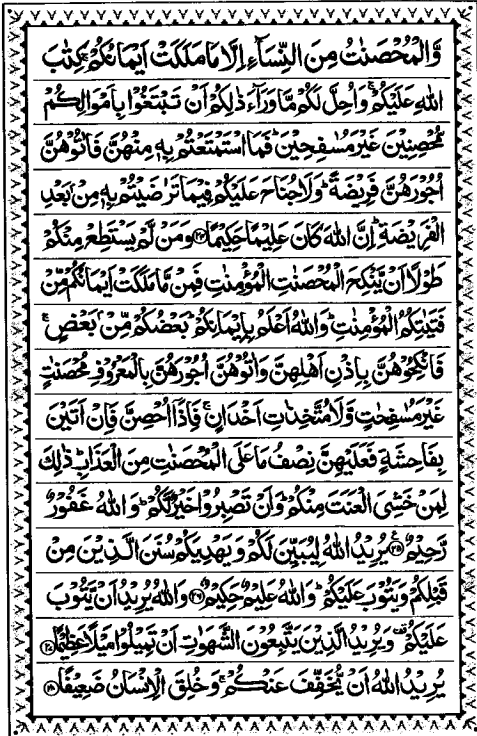 وَّالْمُحْصَنٰتُ مِنَ النِّسَآءِ اِلَّا مَا مَلَكَتْ اَيْمَانُكُمْ ۚ كِتٰبَ
اللّٰهِ عَلَيْكُمْ ۚ وَاُحِلَّ لَكُمْ مَّا وَرَآءَ ذٰلِكُمْ اَنْ تَبْتَغُوْا بِاَمْوَالِكُمْ
مُّحْصِنِيْنَ غَيْرَ مُسٰفِحِيْنَ ؕ فَمَا اسْتَمْتَعْتُمْ بِهٖ مِنْهُنَّ فَاٰتُوْهُنَّ
اُجُوْرَهُنَّ فَرِيْضَةً ؕ وَلَا جُنَاحَ عَلَيْكُمْ فِيْمَا تَرٰضَيْتُمْ بِهٖ مِنْۢ بَعْدِ
الْفَرِيْضَةِ ؕ اِنَّ اللّٰهَ كَانَ عَلِيْمًا حَكِيْمًا ﴿۲۴﴾ وَمَنْ لَّمْ يَسْتَطِعْ مِنْكُمْ
طَوْلًا اَنْ يَّنْكِحَ الْمُحْصَنٰتِ الْمُؤْمِنٰتِ فَمِنْ مَّا مَلَكَتْ اَيْمَانُكُمْ مِّنْ
فَتَيٰتِكُمُ الْمُؤْمِنٰتِ ؕ وَاللّٰهُ اَعْلَمُ بِاِيْمَانِكُمْ ؕ بَعْضُكُمْ مِّنْۢ بَعْضٍ ۚ
فَانْكِحُوْهُنَّ بِاِذْنِ اَهْلِهِنَّ وَاٰتُوْهُنَّ اُجُوْرَهُنَّ بِالْمَعْرُوْفِ مُحْصَنٰتٍ
غَيْرَ مُسٰفِحٰتٍ وَّلَا مُتَّخِذٰتِ اَخْدَانٍ ۚ فَاِذَاۤ اُحْصِنَّ فَاِنْ اَتَيْنَ
بِفَاحِشَةٍ فَعَلَيْهِنَّ نِصْفُ مَا عَلَى الْمُحْصَنٰتِ مِنَ الْعَذَابِ ؕ ذٰلِكَ
لِمَنْ خَشِيَ الْعَنَتَ مِنْكُمْ ؕ وَاَنْ تَصْبِرُوْا خَيْرٌ لَّكُمْ ؕ وَاللّٰهُ غَفُوْرٌ
رَّحِيْمٌ ﴿۲۵﴾ يُرِيْدُ اللّٰهُ لِيُبَيِّنَ لَكُمْ وَيَهْدِيَكُمْ سُنَنَ الَّذِيْنَ مِنْ
قَبْلِكُمْ وَيَتُوْبَ عَلَيْكُمْ ؕ وَاللّٰهُ عَلِيْمٌ حَكِيْمٌ ﴿۲۶﴾ وَاللّٰهُ يُرِيْدُ اَنْ يَّتُوْبَ
عَلَيْكُمْ ۟ وَيُرِيْدُ الَّذِيْنَ يَتَّبِعُوْنَ الشَّهَوٰتِ اَنْ تَمِيْلُوْا مَيْلًا عَظِيْمًا ﴿۲۷﴾
يُرِيْدُ اللّٰهُ اَنْ يُّخَفِّفَ عَنْكُمْ ۚ وَخُلِقَ الْاِنْسَانُ ضَعِيْفًا ﴿۲۸﴾